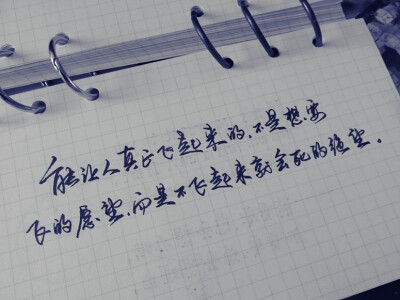 能让人真正飞起来的,不是想要
飞的愿望,而是不飞起来就会死的绝望。